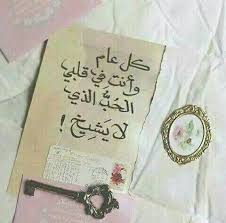 كل عام
وأنت في قلبي
الحب الذي
لا يشيخ !